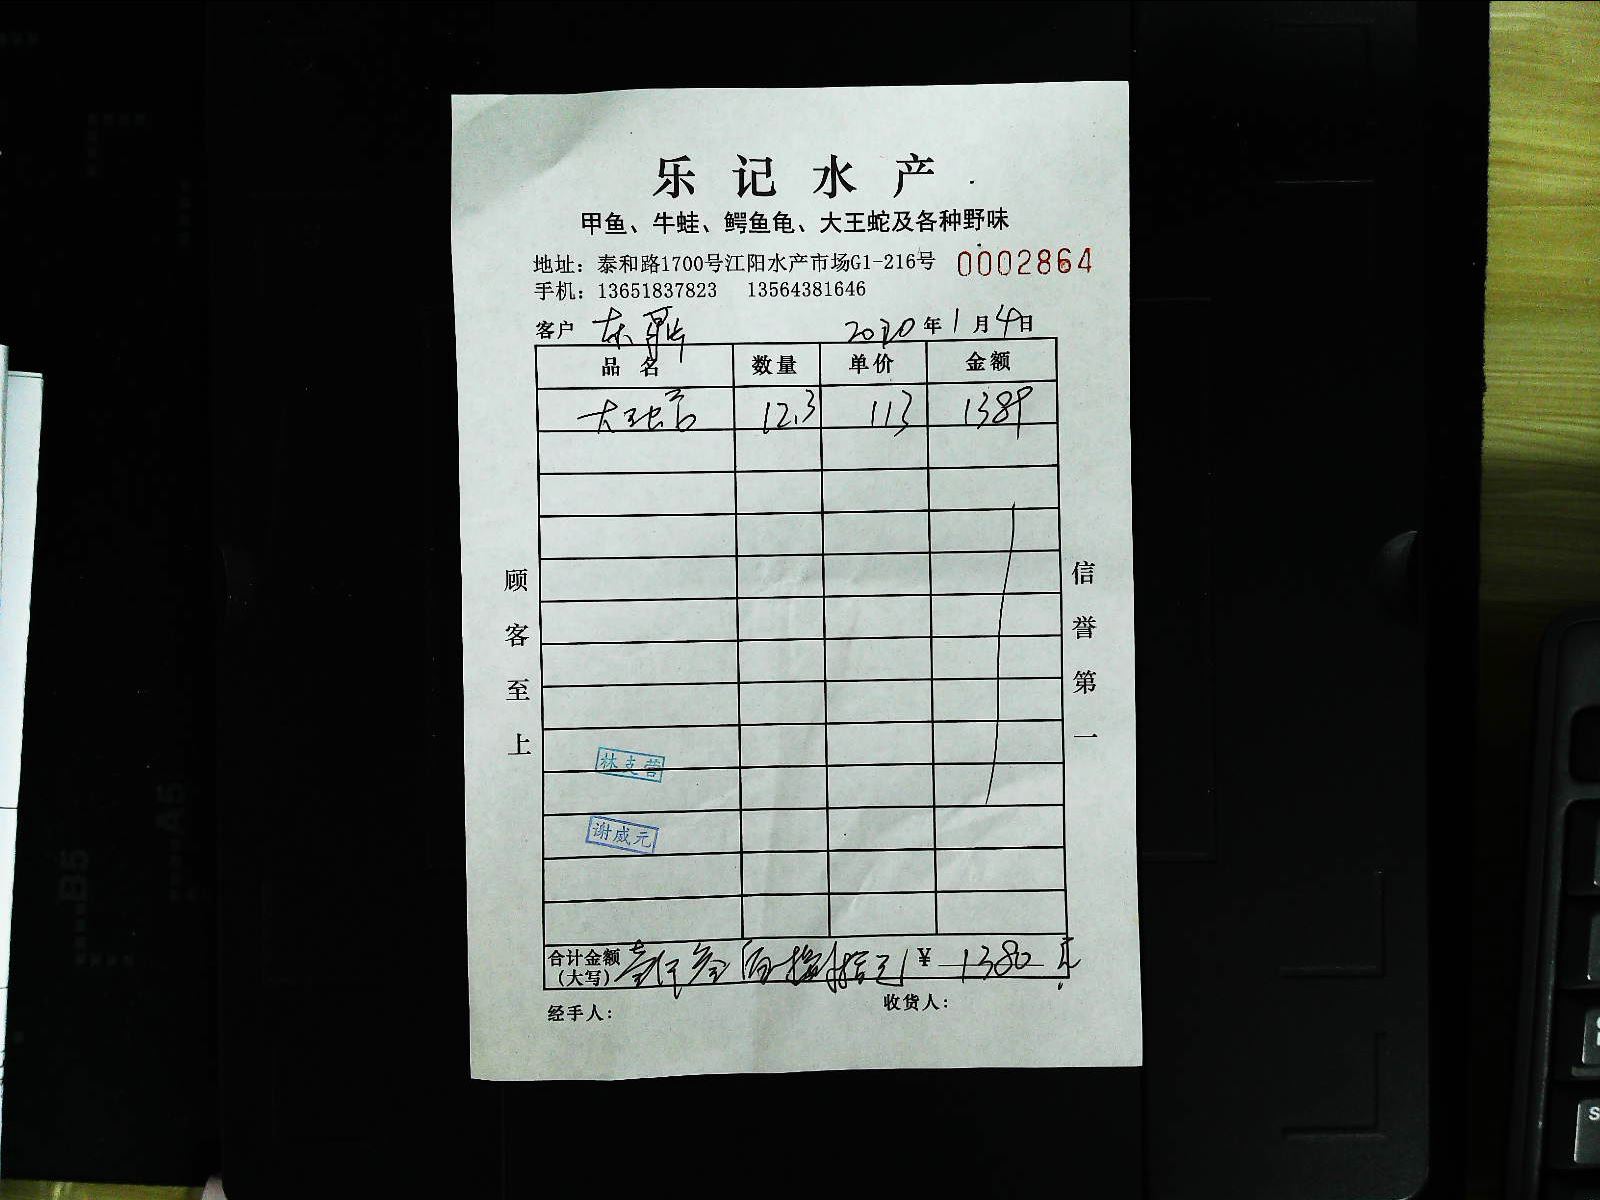 乐记水产
甲鱼、牛蛙、鳄鱼龟、大王蛇及各种野味
地址：泰和路1700号江阳水产市场G1-216号 0002864
手机：13651837823 13564381646
客户 东鼎 2020年1月4日
品名 数量 单价 金额
大王蛇 12.3 113 1389
顾客至上
信誉第一
林支营
谢威元
合计金额 壹仟叁百捌拾元 ¥ 1380 元
（大写）
经手人： 收货人：
B5
A5